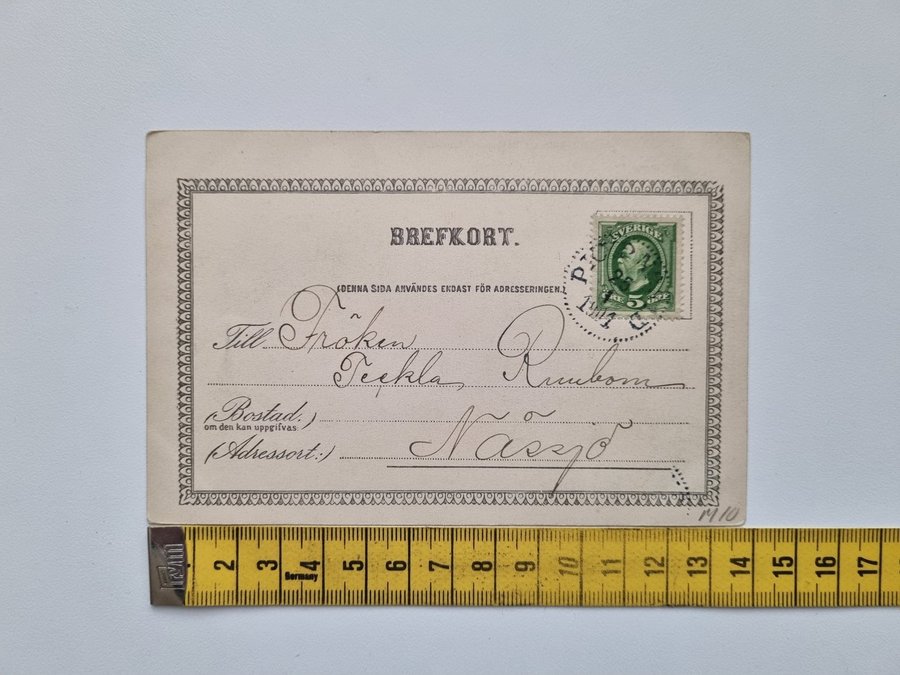 BREFKORT.
SVERIGE
5
(DENNA SIDA ANVÄNDES ENDAST FÖR ADRESSERINGEN.)
1901
Till Fröken
Teckla Rumbom
(Bostad.)
om den kan uppgifvas.
Nässjö
(Adressort:)
M10
2 3 4 5 6 7 8 9 10 11 12 13 14 15 16 17
Germany